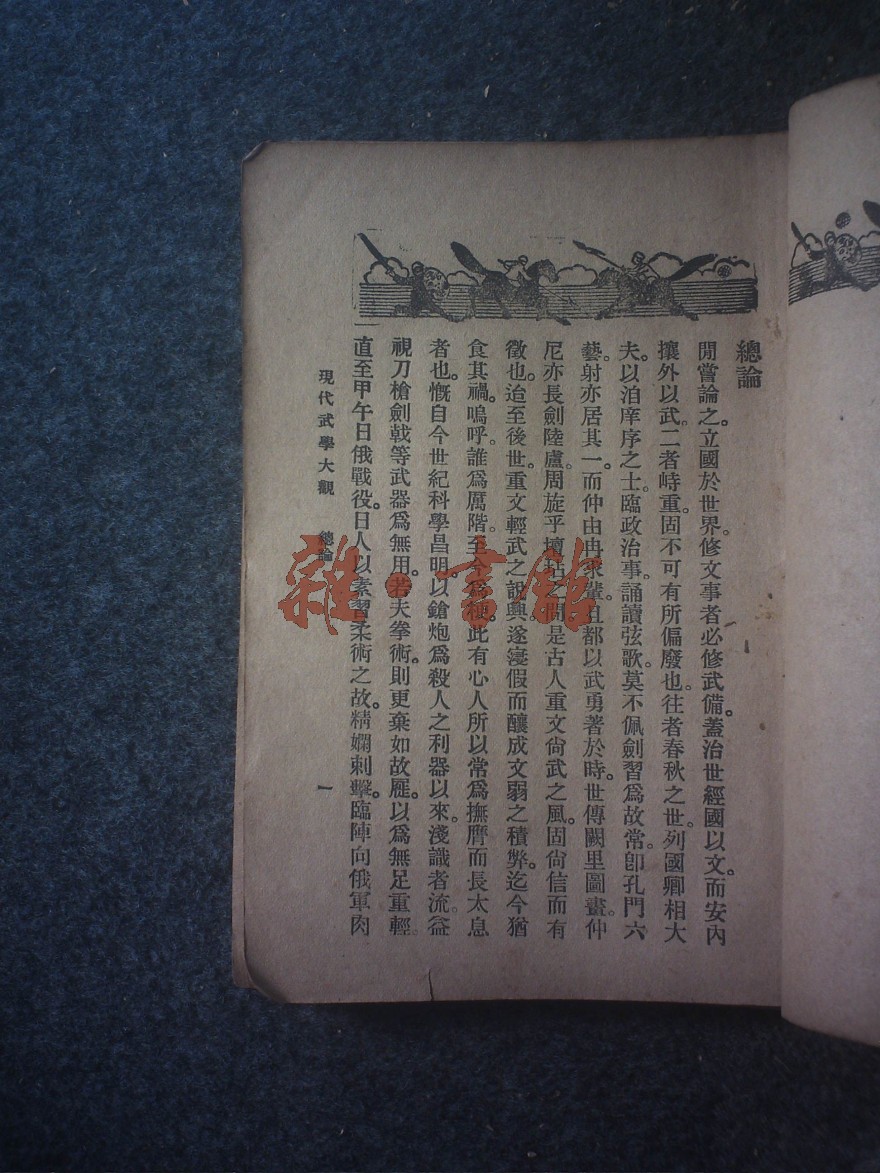 總論
閒嘗論之。立國於世界。修文事者必修武備。蓋治世經國以文。而安內
攘外以武。二者峙重。固不可有所偏廢也。往者春秋之世。列國卿相大
夫。以泊庠序之士。臨政治事。誦讀弦歌。莫不佩劍習爲故常。卽孔門六
藝。射亦居其一。而仲由冉求輩。且都以武勇著於時。世傳闕里圖畫。仲
尼亦長劍陸盧。周旋乎壇坫之間。是古人重文尙武之風。固尙信而有
徵也。迨至後世。重文輕武之說興。遂寖假而釀成文弱之積弊。迄今猶
食其禍。嗚呼。誰爲厲階。至今爲梗。此有心人所以常爲撫膺而長太息
者也。慨自今世紀科學昌明。以鎗炮爲殺人之利器以來。淺識者流。益
視刀槍劍戟等武器爲無用。若夫拳術。則更棄如故雁。以爲無足重輕。
直至甲午日俄戰役。日人以素習柔術之故。精嫻刺擊。臨陣向俄軍肉
現代武學大觀 總論 一
雜·書館